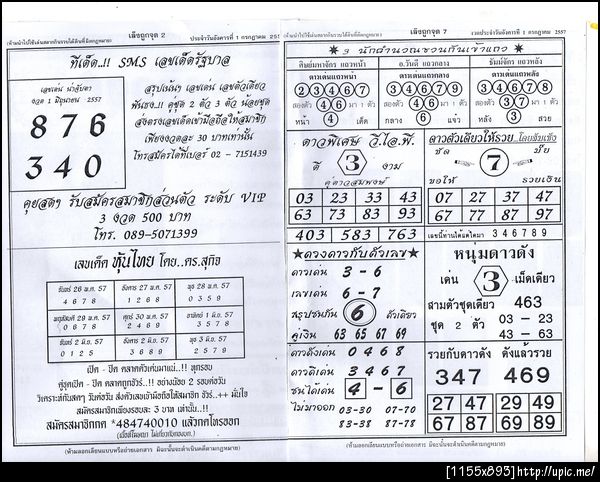 (ห้ามนำไปใช้เล่นสลากกินรวบใต้ดินที่ผิดกฎหมาย)
เล็งถูกจุด 2
ประจำวันอังคารที่ 1 กรกฎาคม 2557
ทีเด็ด..!! SMS เลขเด็ดรัฐบาล
เลขเด่น น่าจับตา
งวด 1 มิถุนายน 2557
876
340
สรุปเน้นๆ เลขเด่น เลขตัวเดียว
ฟันธง..! คู่ชุด 2 ตัว 3 ตัว น้อยชุด
ส่งตรงเลขเด็ดเข้ามือถือ ให้สมาชิก
เพียงงวดละ 30 บาทเท่านั้น
โทรสมัครได้ที่เบอร์ 02 - 7151439
คุยสดๆ รับสมัครสมาชิกส่วนตัว ระดับ VIP
3 งวด 500 บาท
โทร. 089-5071399
เลขเด็ด หุ้นไทย โดย..ดร.สุกิจ
จันทร์ 26 พ.ค. 57
4 6 7 8
อังคาร 27 พ.ค. 57
1 2 6 8
พุธ 28 พ.ค. 57
0 3 5 9
พฤหัสบดี 29 พ.ค. 57
0 4 7 8
ศุกร์ 30 พ.ค. 57
2 4 6 9
อาทิตย์ 1 มิ.ย. 57
3 5 7 8
จันทร์ 2 มิ.ย. 57
0 1 2 5
3 6 8 9
0 2 6 7
เปิด - ปิด ตลาดตัวเด่นมาแน่..!! ทุกรอบ
คู่ชุดเปิด - ปิด ตลาดถูกชัวร์..!! อย่างน้อย 2 รอบต่อวัน
วิเคราะห์กันสดๆ วันต่อวัน ส่งตัวเลขเข้ามือถือให้สมาชิก ชัวร์..++ มั่นใจ
สมัครสมาชิกเพียงรอบละ 3 บาท เท่านั้น..!!
สมัครสมาชิกกด *484740010 แล้วกดโทรออก
(ห้ามลอกเลียนแบบหรือถ่ายเอกสาร มิฉะนั้นจะดำเนินคดีตามกฎหมาย)
(ห้ามนำไปใช้เล่นสลากกินรวบใต้ดินที่ผิดกฎหมาย)
เล็งถูกจุด 7
งวดประจำวันอังคารที่ 1 กรกฎาคม 2557
★ 3 นักคำนวณชวนกันเข้าแถว ★
ศิษย์มหาจักร แถวหน้า
อ.วันดี แถวกลาง
ธันม์จักร แถวหลัง
ดาวเด่นแถวหน้า
ดาวเด่นแถวกลาง
ดาวเด่นแถวหลัง
2 3 4 6 7
3 4 6 7 9
3 4 6 7 8
สองตัว 4 6 มา 1 ตัว
สองตัว 4 6 มา 1 ตัว
สองตัว 3 7 มา 1 ตัว
หน้า 4 เด็ด
กลาง 6 แจ่ว
หลัง 3 สวย
ดาวพิเศษ วี.ไอ.พี.
ดี 3 งาม
คู่ดาวสมพงษ์
03 23 33 43
63 73 83 93
403 583 763
ดาวตัวเดียวให้รวย..โดยลับเซ็ง
ชัด 7 เป๊ะ
ขอให้ รวยเงิน
07 27 37 47
67 77 87 97
เลขนี้ท่านได้แต่ใดมา 3 4 6 7 8 9
★ดวงดาวกับตัวเลข★
ดาวเด่น 3 - 6
เลขเด่น 6 - 7
สรุปชนกัน 6 ตัวเดียว
คู่เงิน 63 65 67 69
ดาวดังเด่น 0 4 6 8
ดาวดีเด่น 3 4 6 7
ชนได้เด่น 4 - 6
ไม่มาออก 03-30 07-70
83-38 87-78
หนุ่มดาวดัง
เด่น 3 เม็ดเดียว
สามตัวชุดเดียว 463
ชุด 2 ตัว 03 - 23
43 - 63
รวยกับดาวดัง
ดังแล้วรวย
347 469
27 47 29 49
67 87 69 89
(ห้ามลอกเลียนแบบหรือถ่ายเอกสาร มิฉะนั้นจะดำเนินคดีตามกฎหมาย)
[1155x893]http://upic.me/